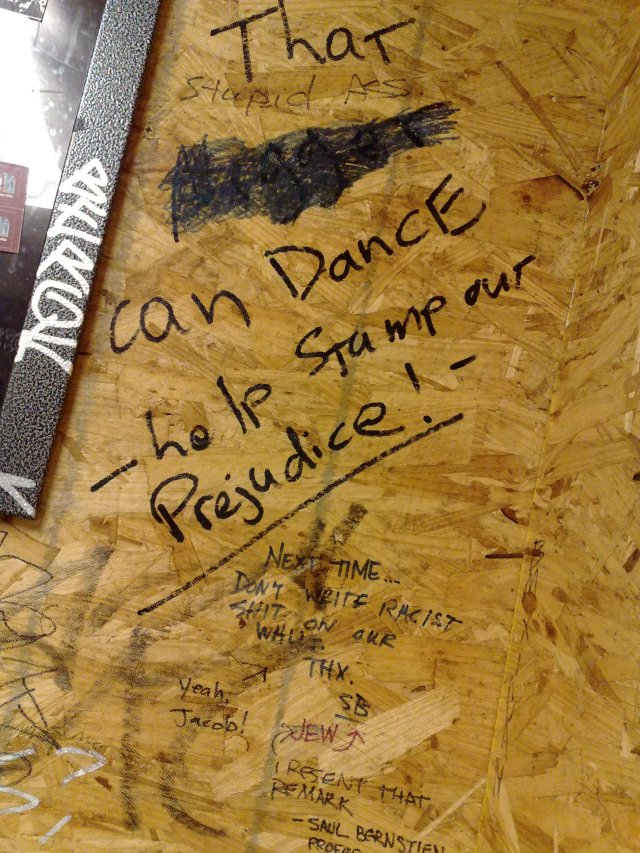 That
Stupid Ass
can Dance
- help Stamp out
Prejudice! -
NEXT TIME...
DON'T WRITE RACIST
SHIT ON OUR
WALL.
THX.
SB
Yeah,
Jacob!
JEW
I RESENT THAT
REMARK
- SAUL BERNSTIEN